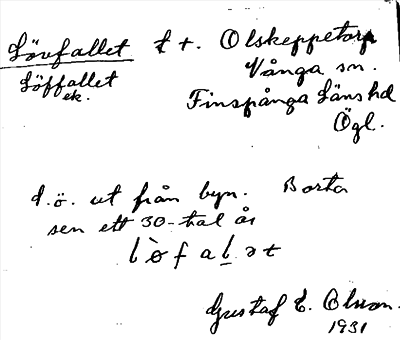 Lövfallet t.+. Olskeppetorp
Löffallet Vånga sn.
ek. Finspånga Läns hd
Ögl.
d.ö. ut från byn. Borta
sen ett 30-tal år
l ò f a l ə t
Gustaf E. Olsson.
1931